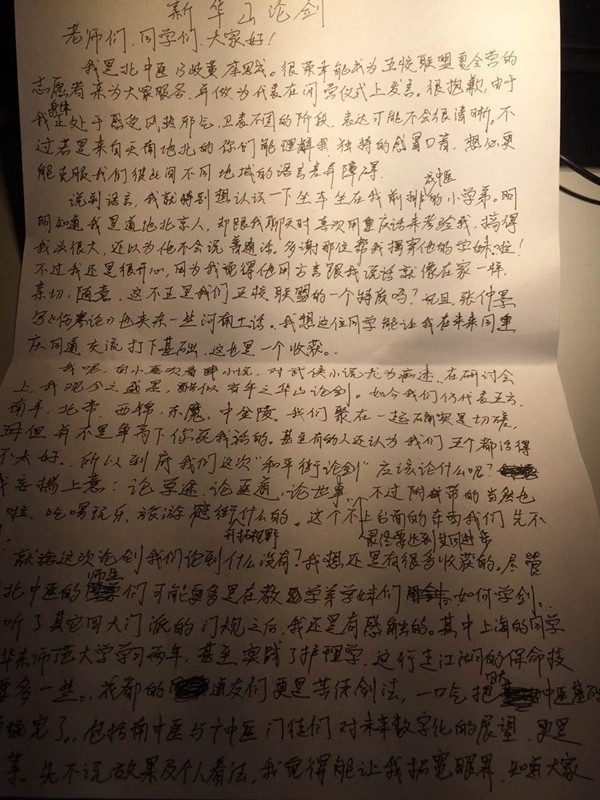 新华山论剑
老师们、同学们、大家好！
我是北中医15岐黄。很荣幸能成为五校联盟夏令营的
志愿者来为大家服务，并做为代表在闭营仪式上发言。很抱歉，由于
我正处于感受风热邪气，卫表不固的阶段，表达可能不会很清晰。不
过若是来自天南地北的你们能理解我独特的感冒口音，想必更
能克服我们彼此间不同地域的语言差异障碍。
说到语言，我就特别想认识一下坐车坐在我前排的小学弟。明
明知道我是道地北京人，却跟我聊天时喜欢用重庆话来考验我，搞得
我头很大，还以为他不会说普通话。多谢那位帮我揭穿他的学妹啦！
不过我还是很开心，因为我觉得他用方言跟我说话就像在家一样，
亲切、随意。这不正是我们五校联盟的一个特质吗？况且，张仲景
写《伤寒论》也夹杂一些河南土话。我想这位同学能让我在未来同重
庆同道交流打下基础，这也是一个收获。
我呢，自小喜欢看小说，对武侠小说尤为痴迷。在研讨会
上，我观今之盛景，酷似当年之华山论剑。如今我们仍代表五方，
南丐、北帝、西锦、东魔、中金陵。我们聚在一起确实是切磋，
但并不是争高下你死我活的。甚至有的人还认为我们五个都活得
不太好。所以到底我们这次“和平街论剑”应该论什么呢？
我妄揣上意：论学术、论医道、论世事。不过附带的当然也
啦，吃喝玩乐、旅游逛街什么的。这个不上台面的东西我们先不
我拓视野 最终要达到共同进步
就论这次论剑我们论到什么没有？我想还是有很多收获的。尽管
北中医的师生们可能更多是在教学弟学妹们如何学剑。
听了其它四大门派的门规之后，我还是有感触的。其中上海的同学
华东师范大学学习两年，甚至实践了护理学，这行走江湖的保命技
要多一些。花都的道友们更是苦练剑法，一口气把中医基础
完了。包括南中医与广中医门徒们对未来数字化的展望，更是
等。先不说放果及个人看法，我觉得能让我拓宽眼界，知道大家